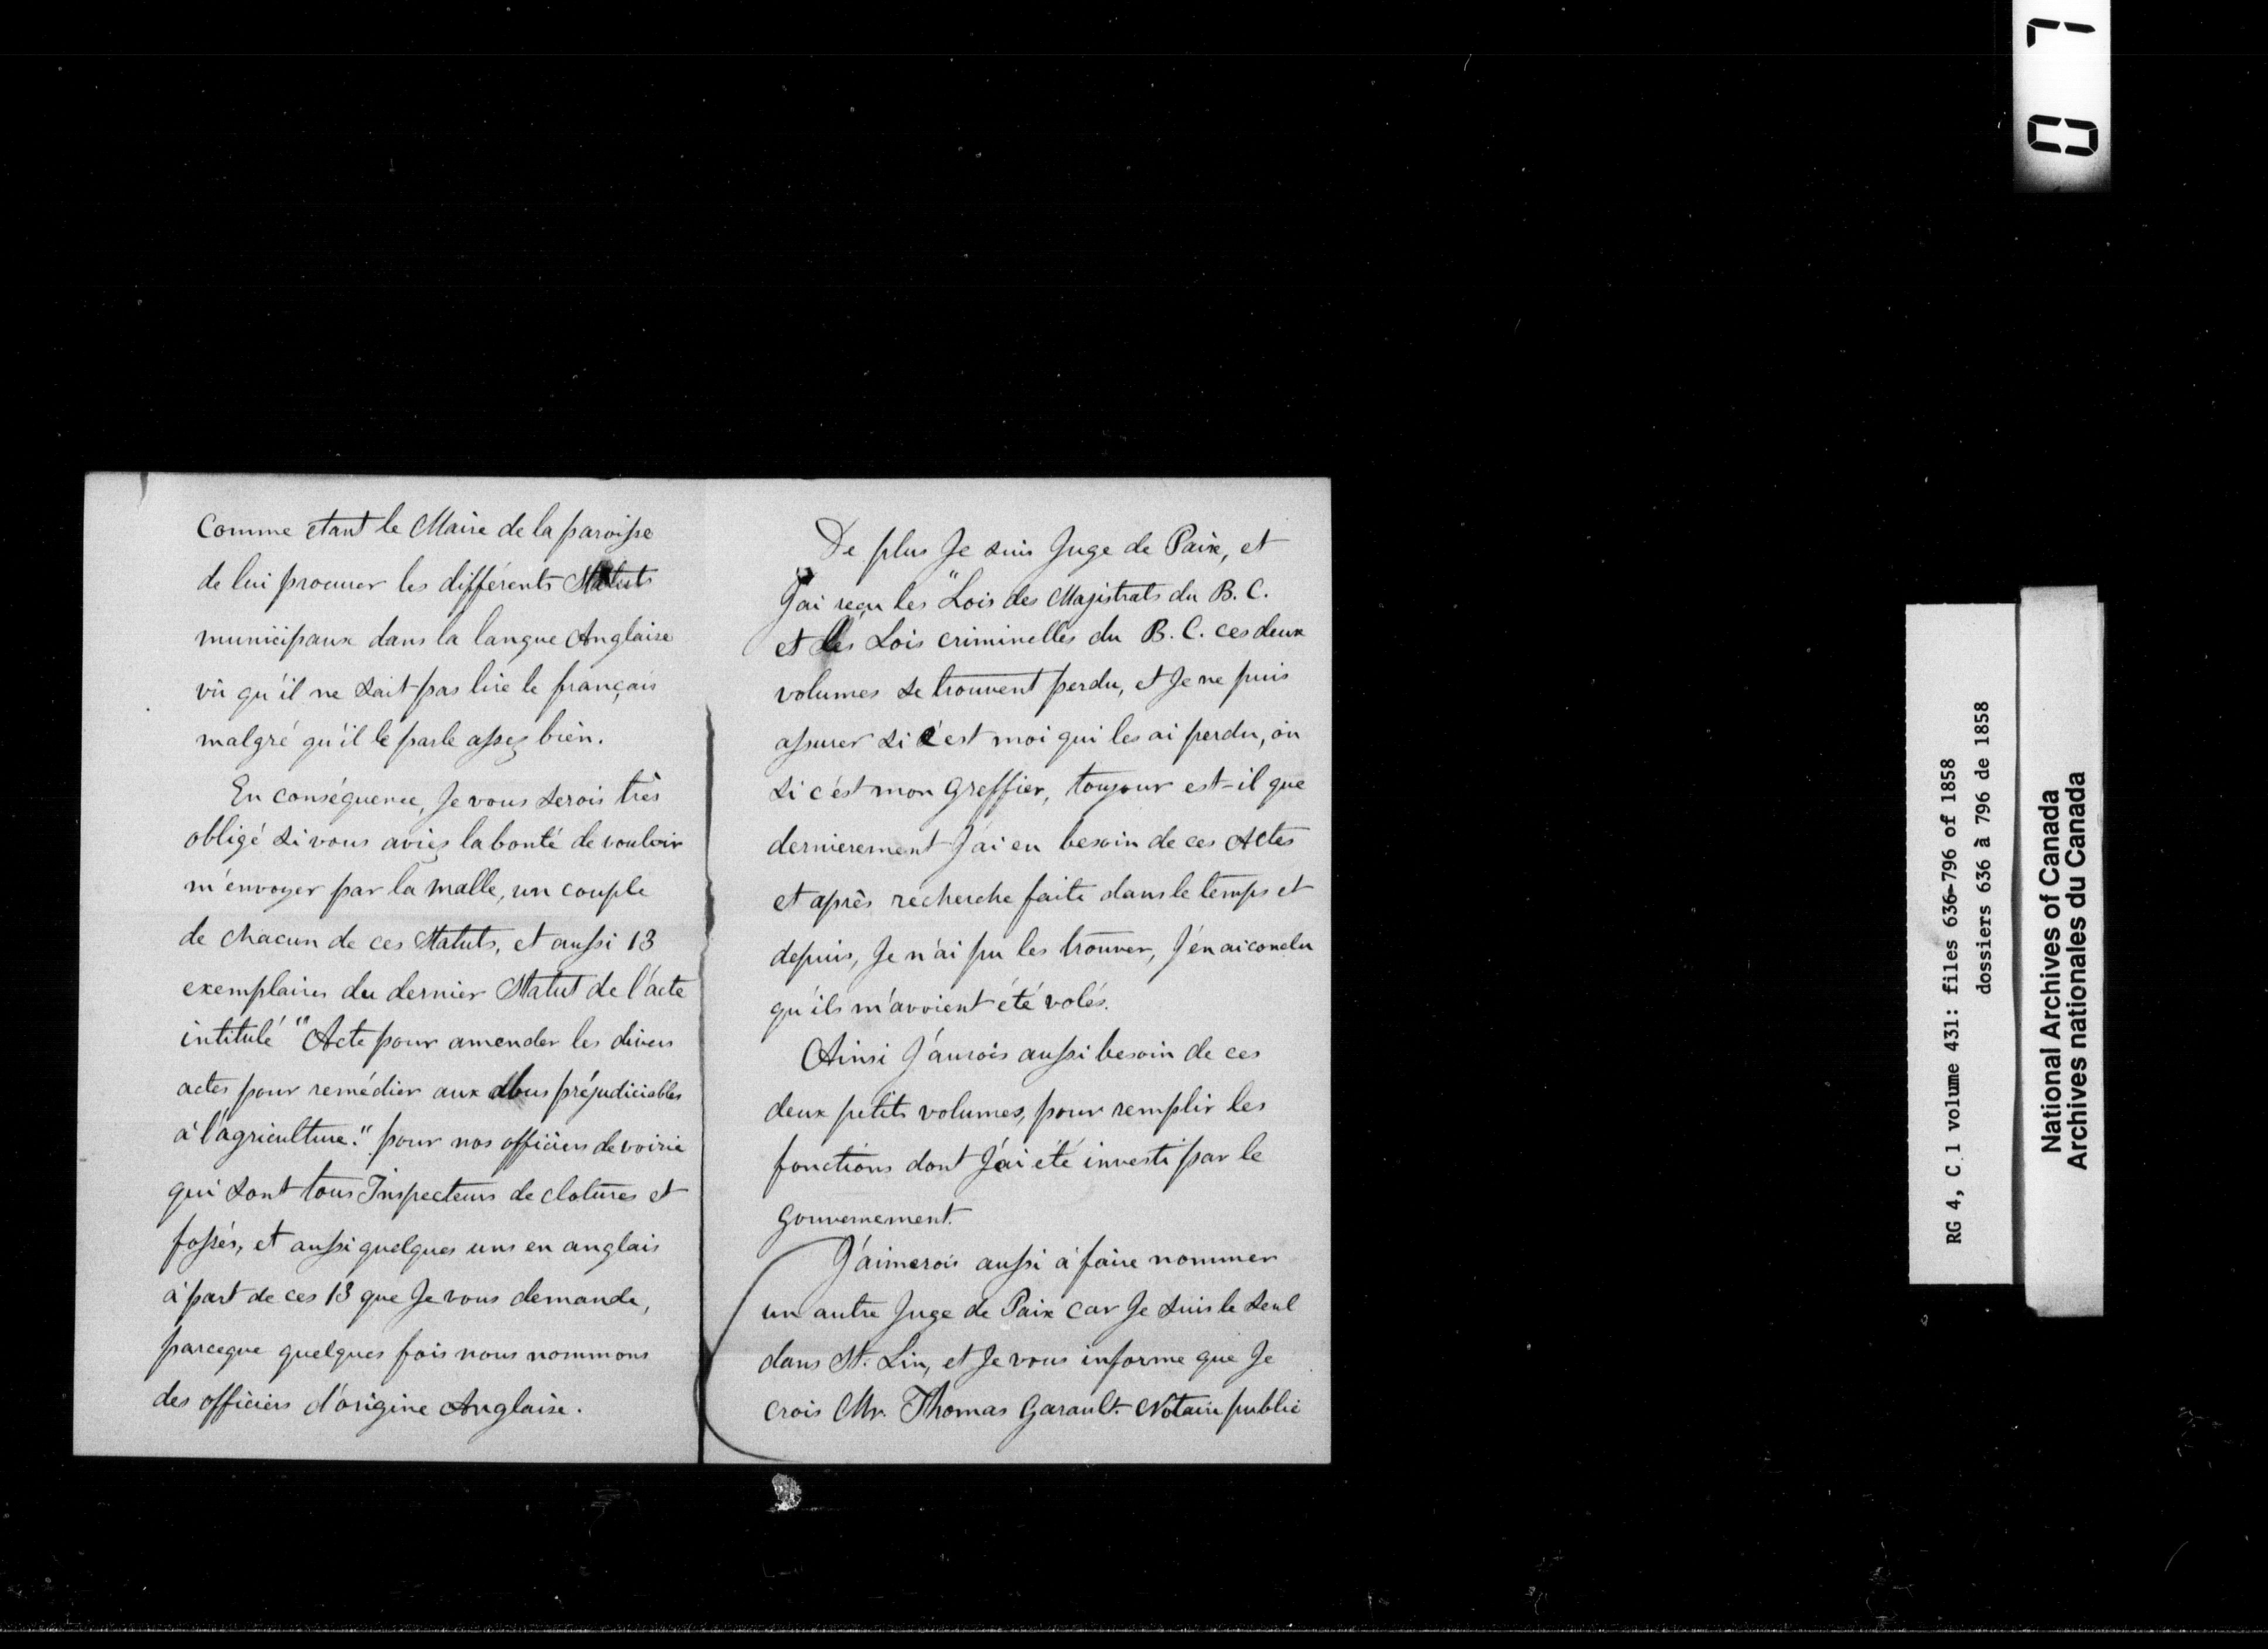 Comme etant le Maire de la paroisse
de lui procurer les différents Statuts
municipaux dans la langue Anglaise
vû qu'il ne sait pas lire le français
malgré qu'il le parle assez bien.
En conséquence, Je vous serois très
obligé si vous aviez la bonté de vouloir
m'envoyer par la malle, un couple
de chacun de ces Statuts, et aussi 13
exemplaires du dernier Statut de l'acte
intitulé "Acte pour amender les divers
actes pour remédier aux abus préjudiciables
à l'agriculture." pour nos officiers de voirie
qui sont tous Inspecteurs de clotures et
fossés, et aussi quelques uns en anglais
à part de ces 13 que Je vous demande,
parceque quelques fois nous nommons
des officiers d'origine Anglaise.
De plus Je suis Juge de Paix, et
J'ai reçu les "Lois des Magistrats du B. C.
et les Lois criminelles du B. C. ces deux
volumes se trouvent perdu, et Je ne puis
assurer si c'est moi qui les ai perdu, ou
si c'est mon Greffier, toujour est-il que
dernierement J'ai eu besoin de ces Actes
et après recherche faite dans le temps et
depuis, Je n'ai pu les trouver, J'en ai conclu
qu'ils m'avoient été volés.
Ainsi J'aurois aussi besoin de ces
deux petits volumes, pour remplir les
fonctions dont J'ai été investi par le
Gouvernement.
J'aimerois aussi à faire nommer
un autre Juge de Paix car Je suis le seul
dans St. Lin, et Je vous informe que Je
crois Mr. Thomas Garault Notaire public
07
RG 4, C 1 volume 431: files 636-796 of 1858
dossiers 636 à 796 de 1858
National Archives of Canada
Archives nationales du Canada